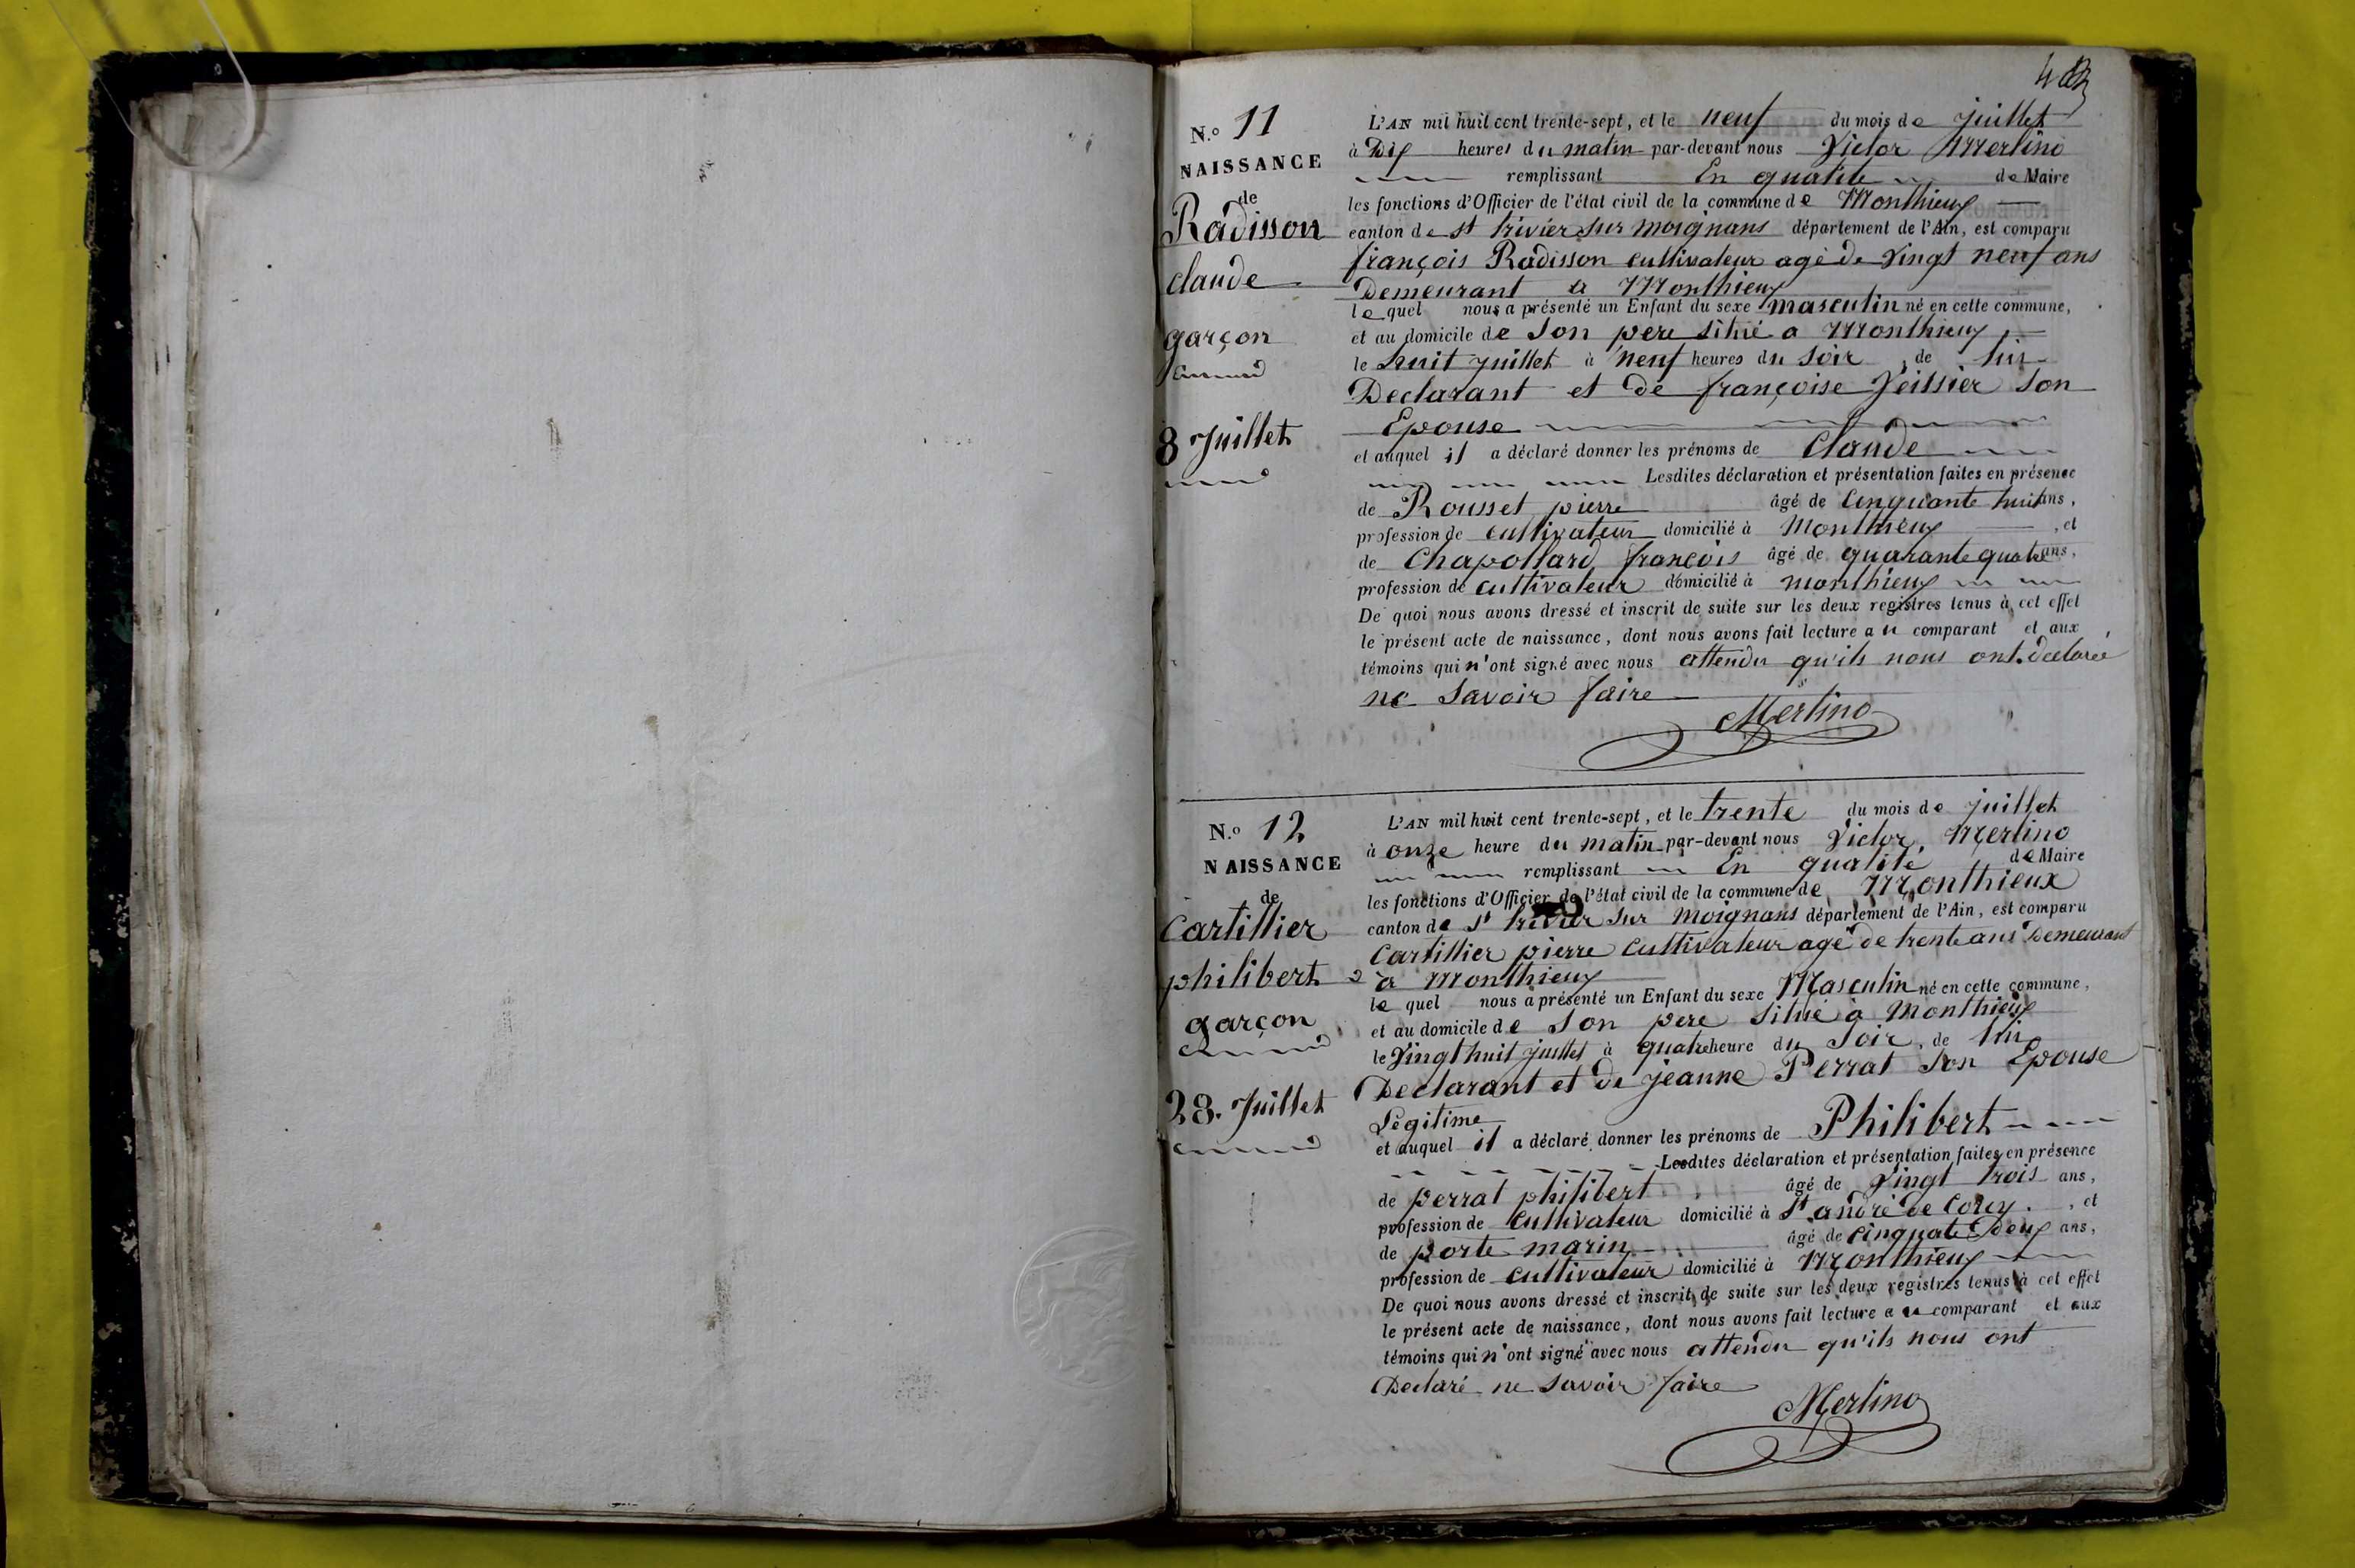 N.o 11
NAISSANCE
de
Radisson
claude
garçon
8 Juillet
L'AN mil huit cent trente-sept, et le neuf du mois de juillet
à Dix heures du matin par-devant nous Victor Merlino
remplissant En qualité de Maire
les fonctions d'Officier de l'état civil de la commune de Monthieux
canton de st trivier sur moignans département de l'Ain, est comparu
françois Radisson cultivateur agé de vingt neuf ans
Demeurant a Monthieux
lequel nous a présenté un Enfant du sexe masculin né en cette commune,
et au domicile de son pere situé a Monthieux
le huit juillet à neuf heures du soir, de lui
Declarant et de françoise Veissier son
Epouse
et auquel il a déclaré donner les prénoms de Claude
Lesdites déclaration et présentation faites en présence
de Rousset pierre âgé de cinquante huit ans,
profession de cultivateur domicilié à Monthieux, et
de Chapollard françois âgé de quarante quatre ans,
profession de cultivateur domicilié à monthieux
De quoi nous avons dressé et inscrit de suite sur les deux registres tenus à cet effet
le présent acte de naissance, dont nous avons fait lecture au comparant et aux
témoins qui n'ont signé avec nous attendu qu'ils nous ont declaré
ne savoir faire
Merlino
N.o 12
NAISSANCE
de
Cartillier
philibert
garçon
28. Juillet
L'AN mil huit cent trente-sept, et le trente du mois de juillet
à onze heure du matin par-devant nous Victor Merlino
remplissant En qualité de Maire
les fonctions d'Officier de l'état civil de la commune de Monthieux
canton de st trivier sur moignans département de l'Ain, est comparu
Cartillier pierre cultivateur agé de trente ans Demeurant
à Monthieux
lequel nous a présenté un Enfant du sexe Masculin né en cette commune,
et au domicile de son pere situé à Monthieux
le vingt huit juillet à quatre heure du soir, de lui
Declarant et de jeanne Perrat son Epouse
Légitime
et auquel il a déclaré donner les prénoms de Philibert
Lesdites déclaration et présentation faites en présence
de perrat philibert âgé de vingt trois ans,
profession de cultivateur domicilié à st andré de Corcy, et
de porte marin âgé de cinquate Deux ans,
profession de cultivateur domicilié à Monthieux
De quoi nous avons dressé et inscrit de suite sur les deux registres tenus à cet effet
le présent acte de naissance, dont nous avons fait lecture au comparant et aux
témoins qui n'ont signé avec nous attendu qu'ils nous ont
Declaré ne savoir faire
Merlino